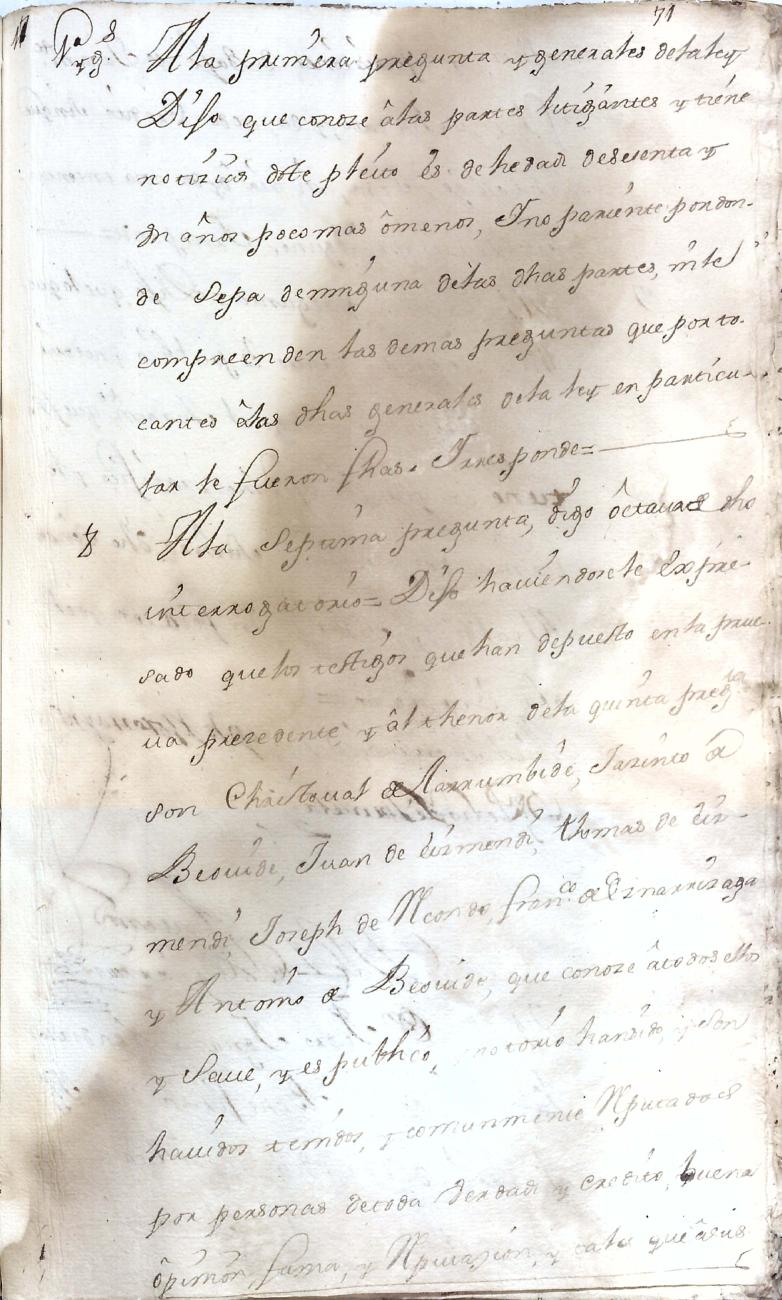 71
1ª y g.s Ala primera pregunta y generales dela ley
Dijo que conoze âlas partes litigantes y tiene
notizias deste pleito es de hedad desesenta y
un años poco mas ômenos, Ino pariente pordon-
de Sepa deninguna delas dhas partes, nile
compreenden las demas preguntas que porto-
cantes âlas dhas generales dela ley en particu-
lar le fueron fhas. Iresponde=
8 Ala Septima pregunta, digo ôctava del dho
interrogatorio= Dijo haviendosele Expre-
sado quelos testigos que han depuesto enla prue-
va prezedente y âl thenor dela quinta preg.ta
son Christoval de Larrumbide, Jazinto de
Beovide, Juan de Urmendi, thomas de Ur-
mendi, Joseph de Recondo, fran.co de Eznarrizaga
y Antonio de Beovide, que conoze âtodos ellos
y Save, y es publico, notorio hansido, y son
havidos tenidos, y comunmente Reputados
por personas detoda Verdad y credito, buena
ôpinion, fama, y Reputazion, y tales que âsus